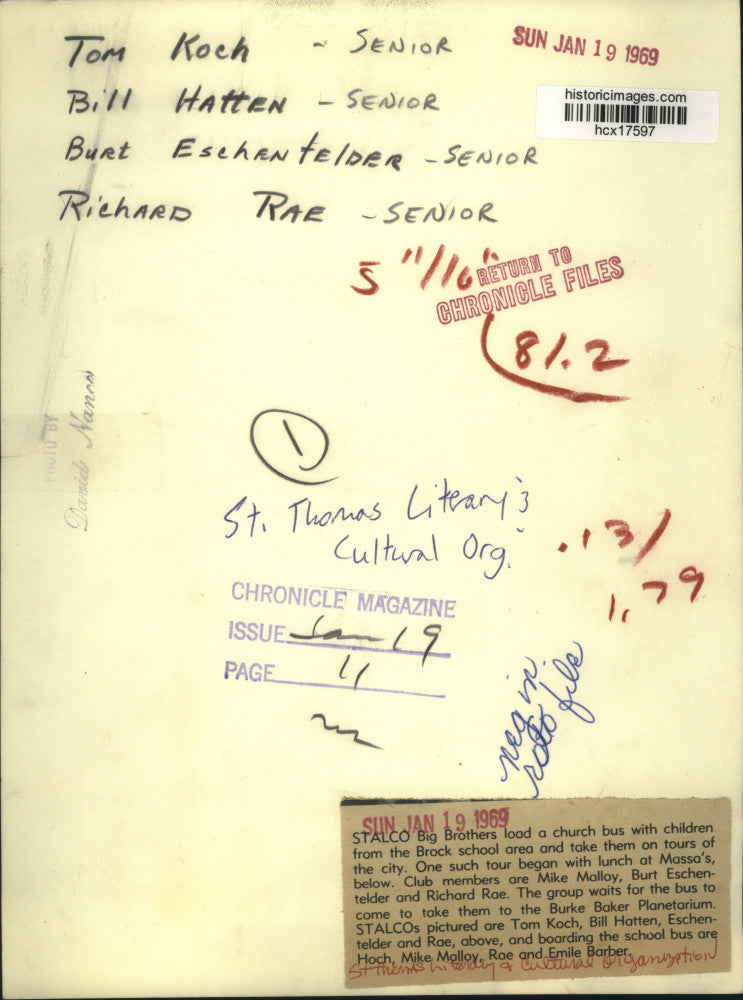 Tom Koch - SENIOR
SUN JAN 19 1969
Bill HATTEN - SENIOR
historicimages.com
hcx17597
Burt EschenfelDER - SENIOR
RichARD RAE - SENIOR
5 "/16"
RETURN TO
CHRONICLE FILES
81.2
PHOTO BY
David Nance
1
St. Thomas Literary &
Cultural Org.
.13/
1.79
CHRONICLE MAGAZINE
ISSUE Jan 19
PAGE 11
neg in
roto file
SUN JAN 19 1969
STALCO Big Brothers load a church bus with children
from the Brock school area and take them on tours of
the city. One such tour began with lunch at Massa's,
below. Club members are Mike Malloy, Burt Eschen-
telder and Richard Rae. The group waits for the bus to
come to take them to the Burke Baker Planetarium.
STALCOs pictured are Tom Koch, Bill Hatten, Eschen-
telder and Rae, above, and boarding the school bus are
Hoch, Mike Malloy, Rae and Emile Barber.
St thomas Literary & cultural Organization